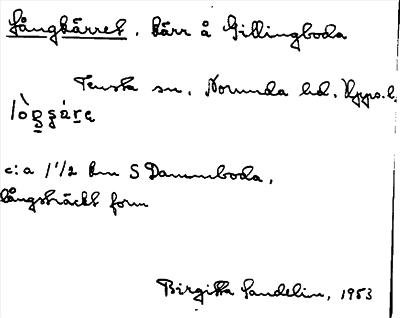 Långkärret, kärr å Gillingboda
Tensta sn, Norunda hd, Upps.l.
c:a 1 1/2 km S Dammboda,
långsträckt form
Birgitta Sandelin, 1953